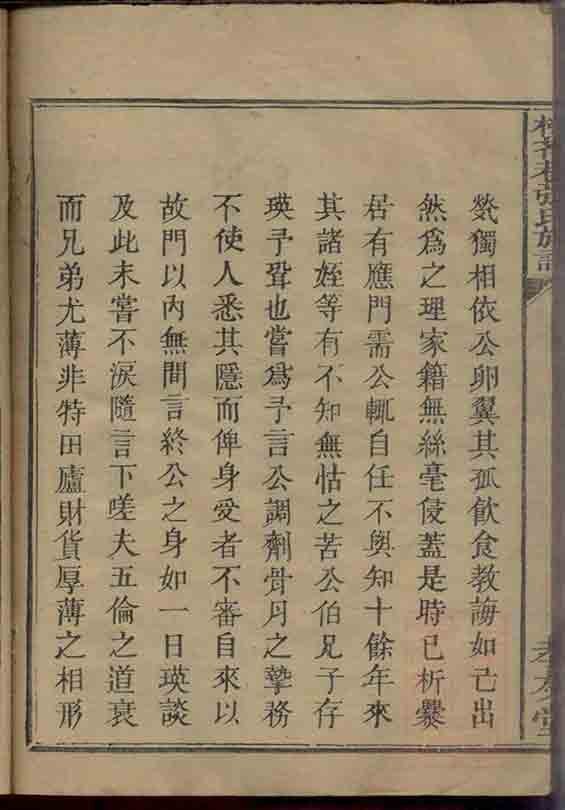 張氏族譜
孝友堂
煢獨相依公卵翼其孤飲食教誨如己出
然為之理家籍無絲毫侵蓋是時已析爨
居有應門需公輒自任不與知十餘年來
其諸姪等有不知無怙之苦公伯兄子存
瑛予聟也嘗為予言公調劑骨月之摯務
不使人悉其隱而俾身受者不審自來以
故門以內無間言終公之身如一日瑛談
及此未嘗不淚隨言下嗟夫五倫之道衰
而兄弟尤薄非特田廬財貨厚薄之相形